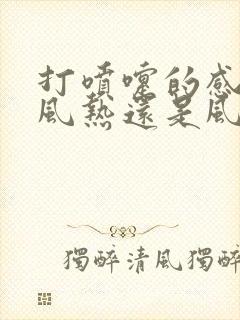 打噴嚏的感
風熱還是風
獨醉清風獨醉